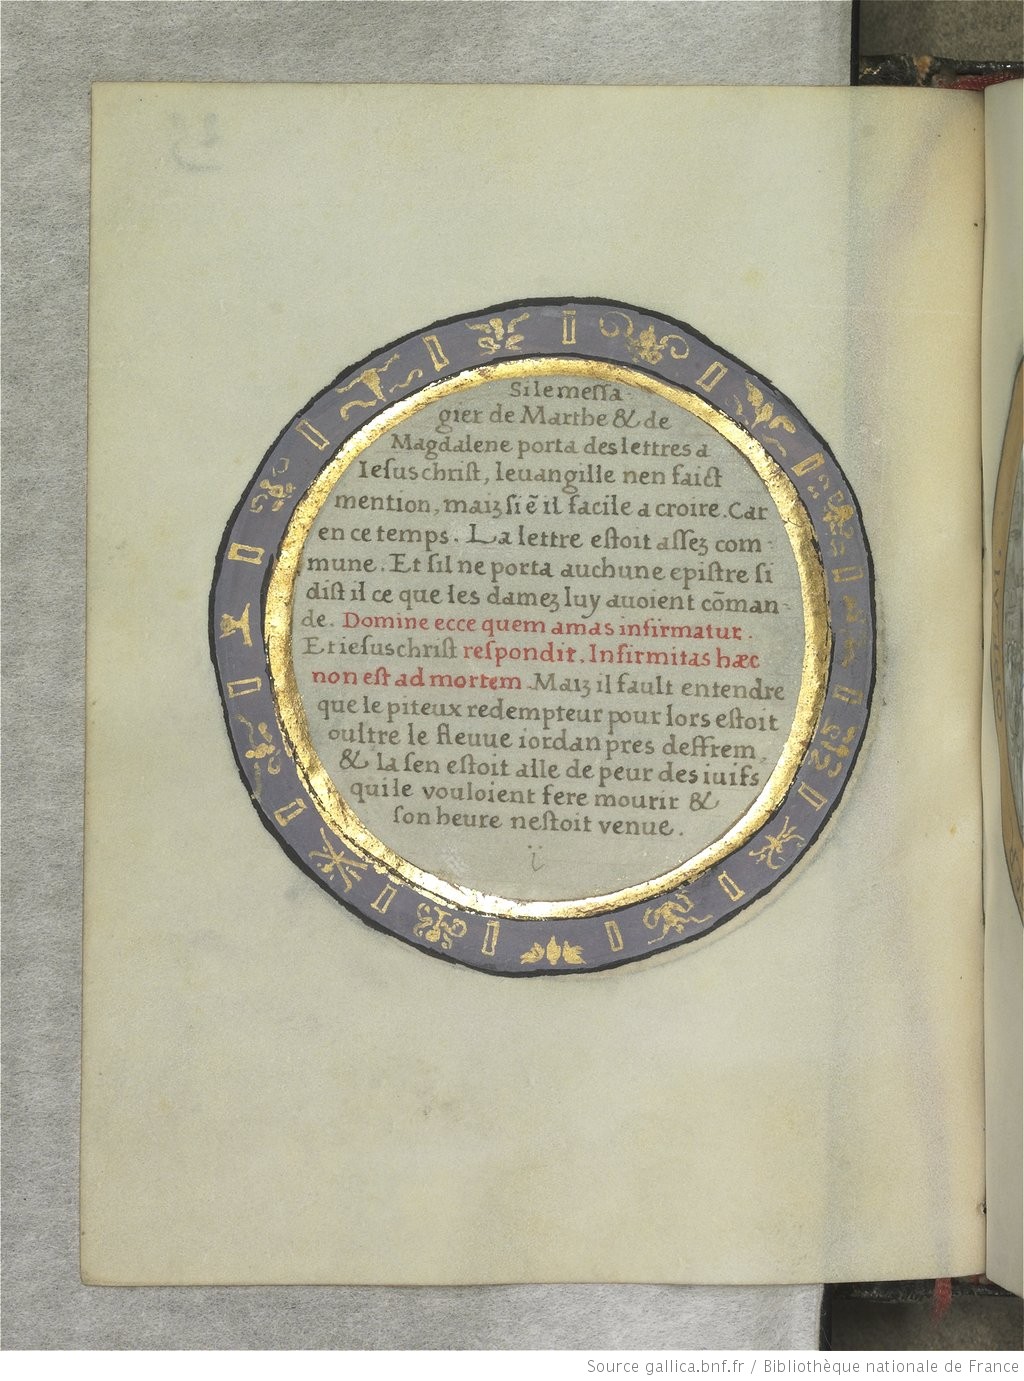 Si le messa-
gier de Marthe & de
Magdalene porta des lettres a
Iesuschrist, leuangille nen faict
mention, maiz si ẽ il facile a croire. Car
en ce temps. La lettre estoit assez com-
mune. Et sil ne porta auchune epistre si
dist il ce que les damez luy auoient cõman-
de. Domine ecce quem amas infirmatur.
Et iesuschrist respondit. Infirmitas hæc
non est ad mortem. Maiz il fault entendre
que le piteux redempteur pour lors estoit
oultre le fleuue iordan pres deffrem,
& la sen estoit alle de peur des iuifs
qui le vouloient fere mourir &
son heure nestoit venue.
Source gallica.bnf.fr / Bibliothèque nationale de France